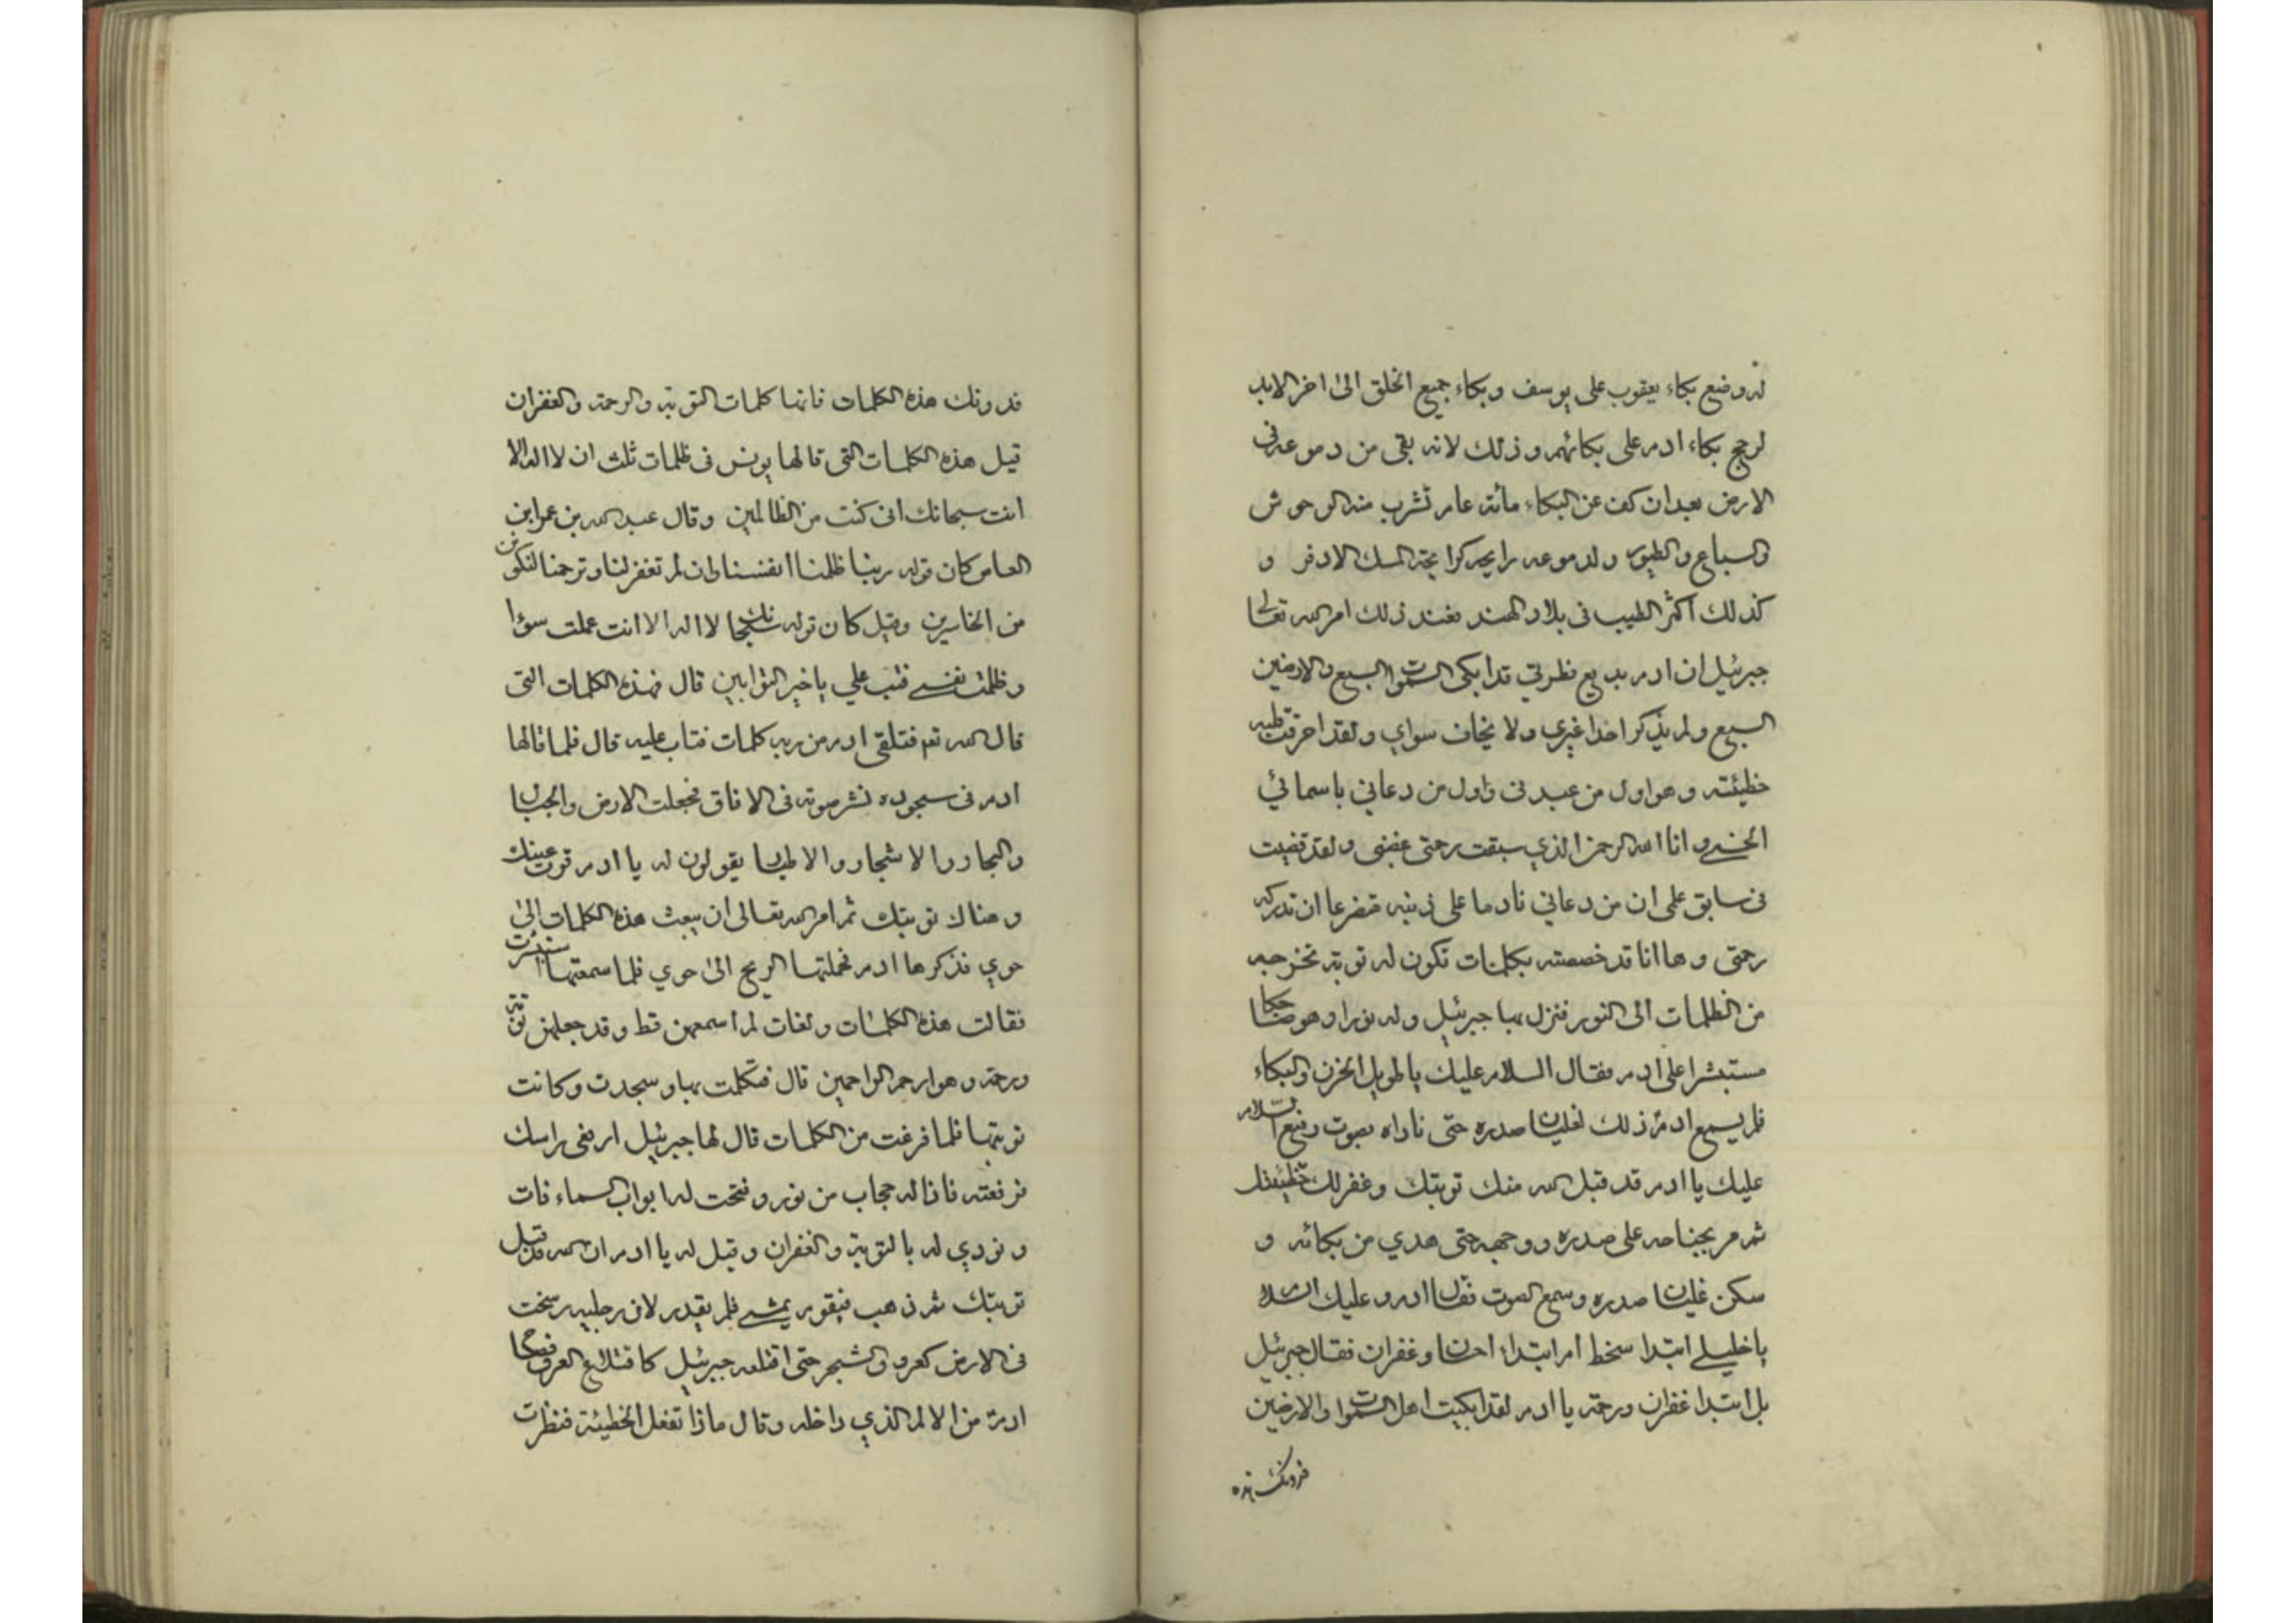 لو وضع بكاء يعقوب على يوسف وبكاء جميع الخلق الى اخر الابد
لرجح بكاء ادم على بكائهم وذلك لانه بقى من دموعه فى
الارض بعد ان كف عن البكاء مائة عام تشرب منه الوحوش
والسباع والطيور ولدموعه رايحه كرايحة المسك الاذفر و
كذلك اكثر الطيب فى بلاد الهند فعند ذلك امر الله تعالى
جبرئيل ان ادم بديع فطرتي قد ابكى السموات السبع والارضين
السبع ولم يذكر احدا غيري ولا يخاف سواي ولقد احرقت قلبه
خطيئته وهو اول من عبدنى واول من دعاني باسمائي
الحسنى وانا الله الرحمن الذي سبقت رحمتى غضبى ولقد قضيت
فى سابق علمى ان من دعاني نادما على ذنبه متضرعا ان تدركه
رحمتى وها انا قد خصصته بكلمات تكون له توبة تخرجه
من الظلمات الى النور فنزل بها جبرئيل وله نورا وهو ضاحكا
مستبشرا على ادم فقال السلام عليك يا طويل الحزن والبكاء
فلم يسمع ادم ذلك لغليان صدره حتى ناداه بصوت رفيع السلام
عليك يا ادم قد قبل الله منك توبتك وغفر لك خطيئتك
ثم مر بجناحه على صدره ووجهه حتى هدي من بكائه و
سكن غليان صدره وسمع الصوت فقال ادم وعليك السلام
يا خليلي ابتدا سخط ام ابتداء احسان وغفران فقال جبرئيل
بل ابتدا غفران ورحمة يا ادم لقد ابكيت اهل السموات والارضين
فدونك هذه
فدونك هذه الكلمات فانها كلمات التوبة والرحمة والغفران
قيل هذه الكلمات التى قالها يونس فى ظلمات ثلث ان لا اله الا
انت سبحانك انى كنت من الظالمين وقال عبد الله بن عمرابن
العاص كان قوله ربنا ظلمنا انفسنا وان لم تغفر لنا وترحمنا لنكونن
من الخاسرين وقيل كان قوله سبحانك لا اله الا انت عملت سوؤا
وظلمت نفسي فتب علي يا خير التوابين قال فهذه الكلمات التى
قال الله تعم فتلقى ادم من ربه كلمات فتاب عليه قال فلما قالها
ادم فى سجوده نشر صوته فى الافاق فجعلت الارض والجبال
والبحار والاشجار والاطيار يقولون له يا ادم قرت عينك
وهناك توبتك ثم امر الله تعالى ان يبعث هذه الكلمات الى
حوي فذكرها ادم فحملتها الريح الى حوي فلما سمعتها استبشرت
فقالت هذه الكلمات ولغات لم اسمعهن قط وقد جعلهن توبة
ورحمة وهو ارحم الراحمين قال فتكلمت بها وسجدت وكانت
توبتها فلما فرغت من الكلمات قال لها جبرئيل ارفعى راسك
فرفعته فاذا له حجاب من نور وفتحت له ابواب السماء فات
ونودي له بالتوبة والغفران وقيل له يا ادم ان الله قد قبل
توبتك ثم ذهب فيقوم يمشي فلم يقدر لان رجليه رسخت
فى الارض كعروق الشجر حتى اقتلعه جبرئيل كاقتلاع العروق
ادم من الالم الذي داخله وقال ماذا تفعل الخطيئة فنظرت